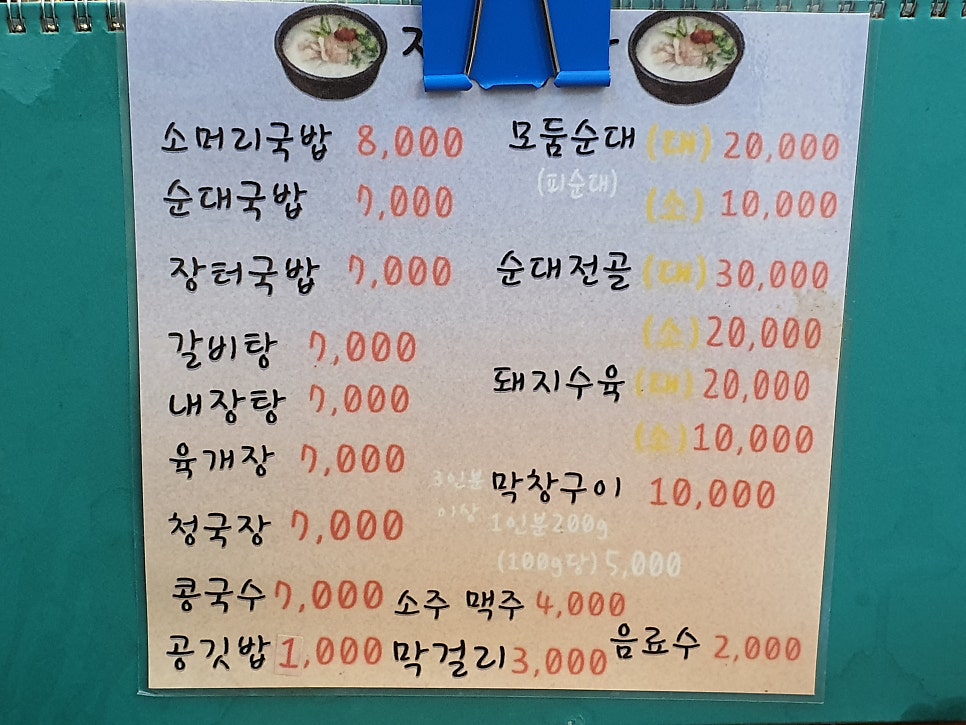 소머리국밥 8,000
순대국밥 7,000
장터국밥 7,000
갈비탕 7,000
내장탕 7,000
육개장 7,000
청국장 7,000
콩국수 7,000
공깃밥 1,000
모둠순대 (대) 20,000
(피순대)
(소) 10,000
순대전골 (대) 30,000
(소) 20,000
돼지수육 (대) 20,000
(소) 10,000
막창구이 10,000
3인분
이상
1인분200g
(100g당) 5,000
소주 맥주 4,000
막걸리 3,000
음료수 2,000